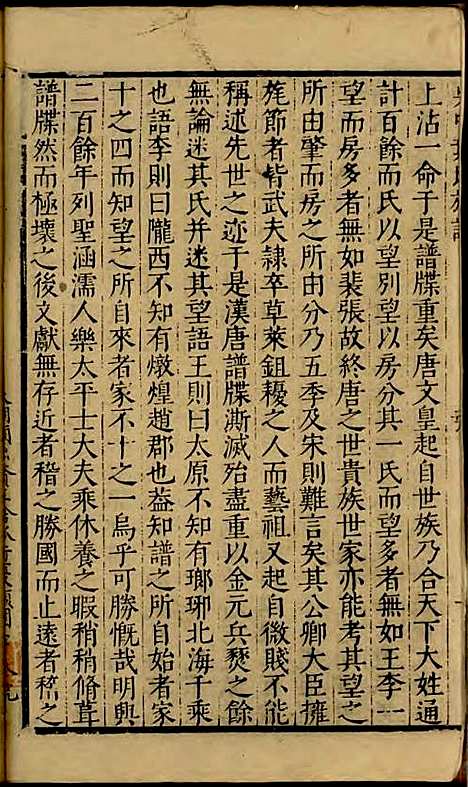 上沾一命于是譜牒重矣唐文皇起自世族乃合天下大姓通
計百餘而氏以望别望以房分其一氏而望多者無如王李一
望而房多者無如裴張故終唐之世貴族世家亦能考其望之
所由肇而房之所由分乃五季及宋則難言矣其公卿大臣擁
旄節者皆武夫隷卒草萊鉏耰之人而藝祖又起自微賤不能
稱述先世之迹于是漢唐譜牒澌滅殆盡重以金元兵燹之餘
無論迷其氏并迷其望語王則曰太原不知有瑯琊北海千乘
也語李則曰隴西不知有燉煌趙郡也葢知譜之所自始者家
十之四而知望之所自來者家不十之一烏乎可勝慨哉明興
二百餘年列聖涵濡人樂太平士大夫乘休養之暇稍稍脩葺
譜牒然而極壞之後文獻無存近者稽之勝國而止遠者稽之